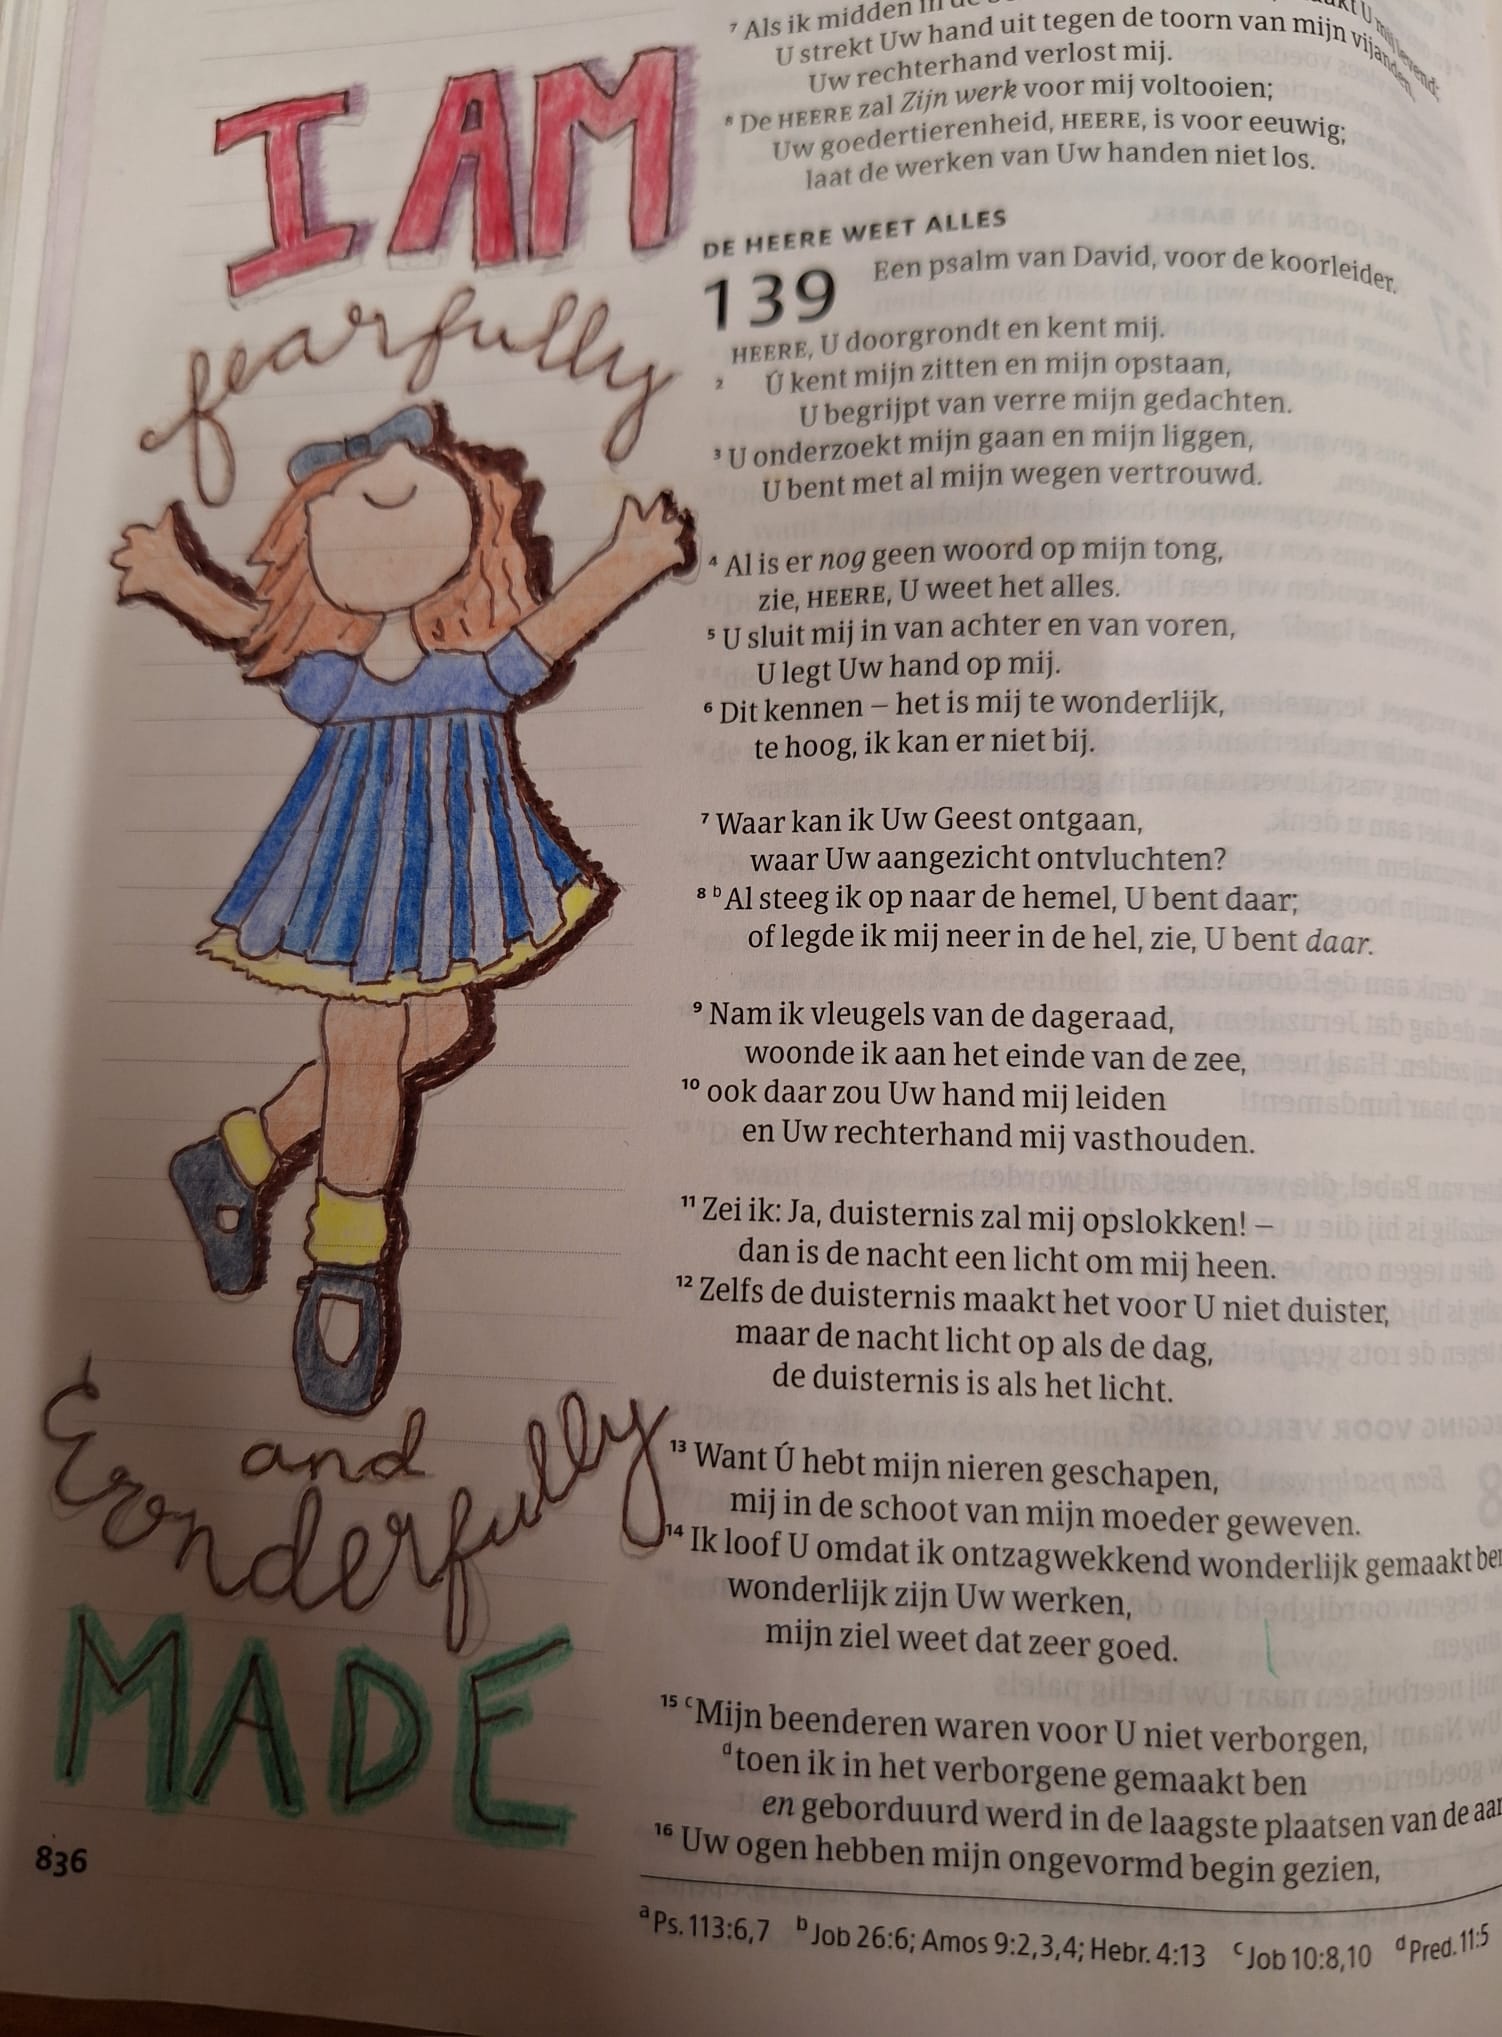 I AM
fearfully
and
Wonderfully
MADE
836
⁷ Als ik midden in
U strekt Uw hand uit tegen de toorn van mijn vijanden,
Uw rechterhand verlost mij.
⁸ De HEERE zal Zijn werk voor mij voltooien;
Uw goedertierenheid, HEERE, is voor eeuwig;
laat de werken van Uw handen niet los.
DE HEERE WEET ALLES
139 Een psalm van David, voor de koorleider.
HEERE, U doorgrondt en kent mij.
² Ú kent mijn zitten en mijn opstaan,
U begrijpt van verre mijn gedachten.
³ U onderzoekt mijn gaan en mijn liggen,
U bent met al mijn wegen vertrouwd.
⁴ Al is er nog geen woord op mijn tong,
zie, HEERE, U weet het alles.
⁵ U sluit mij in van achter en van voren,
U legt Uw hand op mij.
⁶ Dit kennen – het is mij te wonderlijk,
te hoog, ik kan er niet bij.
⁷ Waar kan ik Uw Geest ontgaan,
waar Uw aangezicht ontvluchten?
⁸ ᵇ Al steeg ik op naar de hemel, U bent daar;
of legde ik mij neer in de hel, zie, U bent daar.
⁹ Nam ik vleugels van de dageraad,
woonde ik aan het einde van de zee,
¹⁰ ook daar zou Uw hand mij leiden
en Uw rechterhand mij vasthouden.
¹¹ Zei ik: Ja, duisternis zal mij opslokken! –
dan is de nacht een licht om mij heen.
¹² Zelfs de duisternis maakt het voor U niet duister,
maar de nacht licht op als de dag,
de duisternis is als het licht.
¹³ Want Ú hebt mijn nieren geschapen,
mij in de schoot van mijn moeder geweven.
¹⁴ Ik loof U omdat ik ontzagwekkend wonderlijk gemaakt ben
wonderlijk zijn Uw werken,
mijn ziel weet dat zeer goed.
¹⁵ ᶜ Mijn beenderen waren voor U niet verborgen,
ᵈ toen ik in het verborgene gemaakt ben
en geborduurd werd in de laagste plaatsen van de
¹⁶ Uw ogen hebben mijn ongevormd begin gezien,
ᵃ Ps. 113:6,7 ᵇ Job 26:6; Amos 9:2,3,4; Hebr. 4:13 ᶜ Job 10:8,10 ᵈ Pred. 11:5